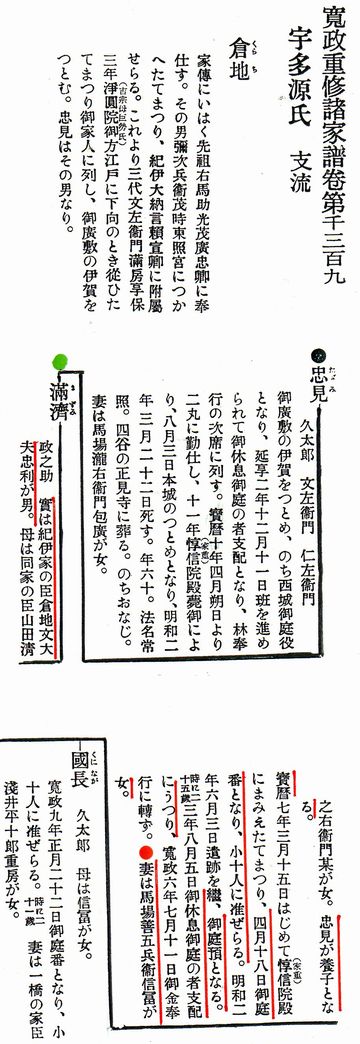 寬政重修諸家譜卷第千三百九
宇多源氏 支流
倉地
くらち
家傳にいはく先祖右馬助光茂廣忠卿に奉
仕す。その男彌次兵衞茂時東照宮につか
へたてまつり、紀伊大納言賴宣卿に附屬
せらる。これより三代文左衞門滿房享保
三年淨圓院御方江戸に下向のとき從ひた
てまつり御家人に列し、御廣敷の伊賀を
つとむ。忠見はその男なり。
忠見
たゞみ
久太郎 文左衞門 仁左衞門
御廣敷の伊賀をつとめ、のち西城御庭役
となり、延享二年十二月十一日班を進め
られて御休息御庭の者支配となり、林奉
行の次席に列す。寶曆十年四月朔日より
二丸に勤仕し、十一年惇信院殿薨御によ
(家重)
り、八月三日本城のつとめとなり、明和二
年三月二十二日死す。年六十。法名常
照。四谷の正見寺に葬る。のちおなじ。
妻は馬場瀧右衞門包廣が女。
滿濟
政之助 實は紀伊家の臣倉地文大
夫忠利が男。母は同家の臣山田淸
之右衞門某が女。忠見が養子とな
る。
寶曆七年三月十五日はじめて惇信院殿
(家重)
にまみえたてまつり、四月十八日御庭
番となり、小十人に准ぜらる。明和二
年六月三日遺跡を繼、御庭預となる。
時に二十五歲
三年八月五日御休息御庭の者支配
にうつり、寬政六年七月十一日御金奉
行に轉ず。妻は馬場善五兵衞信富が
女。
國長
くになが
久太郎 母は信富が女。
寬政九年正月二十二日御庭番となり、小
十人に准ぜらる。時に二十一歲 妻は一橋の家臣
淺井平十郎重房が女。